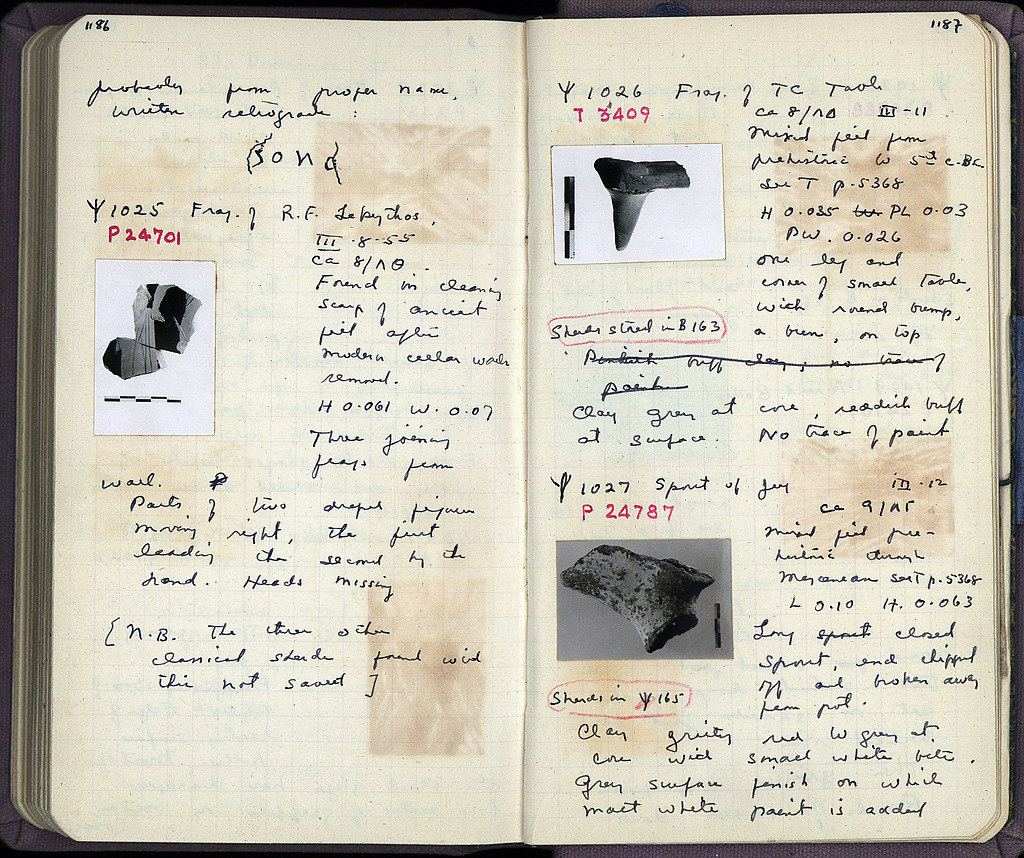 1186
probably from proper name,
written retrograde :
Ψ 1025 Frag. of R.F. Lekythos,
P 24701
III - 8 - 55
ca 8/ΛΘ
Found in cleaning
scarp of ancient
fill after
modern cellar walls
removed.
H 0.061 W. 0.07
Three joining
frags from
wall.
Parts of two draped figures
moving right, the first
leading the second by the
hand. Heads missing
[N.B. The three other
classical sherds found with
this not saved ]
1187
Ψ 1026 Frag. of TC Table
T 3409
ca 8/ΛΔ III - 11
Mixed fill from
prehistoric to 5th c. BC
See T p. 5368
H 0.035 PL 0.03
PW. 0.026
One leg and
corner of small table,
with round bump,
a bun, on top
Sherds stored in B 163
Pinkish buff clay, no trace of
paint
Clay gray at core, reddish buff
at surface. No trace of paint
Ψ 1027 Spout of Jug III - 12
P 24787
ca 9/ΛΕ
Mixed fill pre-
historic through
Mycenaean See T p. 5368
L 0.10 H. 0.063
Long spout closed
spout, end chipped
off and broken away
from pot.
Sherds in Ψ 165
Clay gritty red to gray at
core with small white bits.
Gray surface finish on which
matt white paint is added